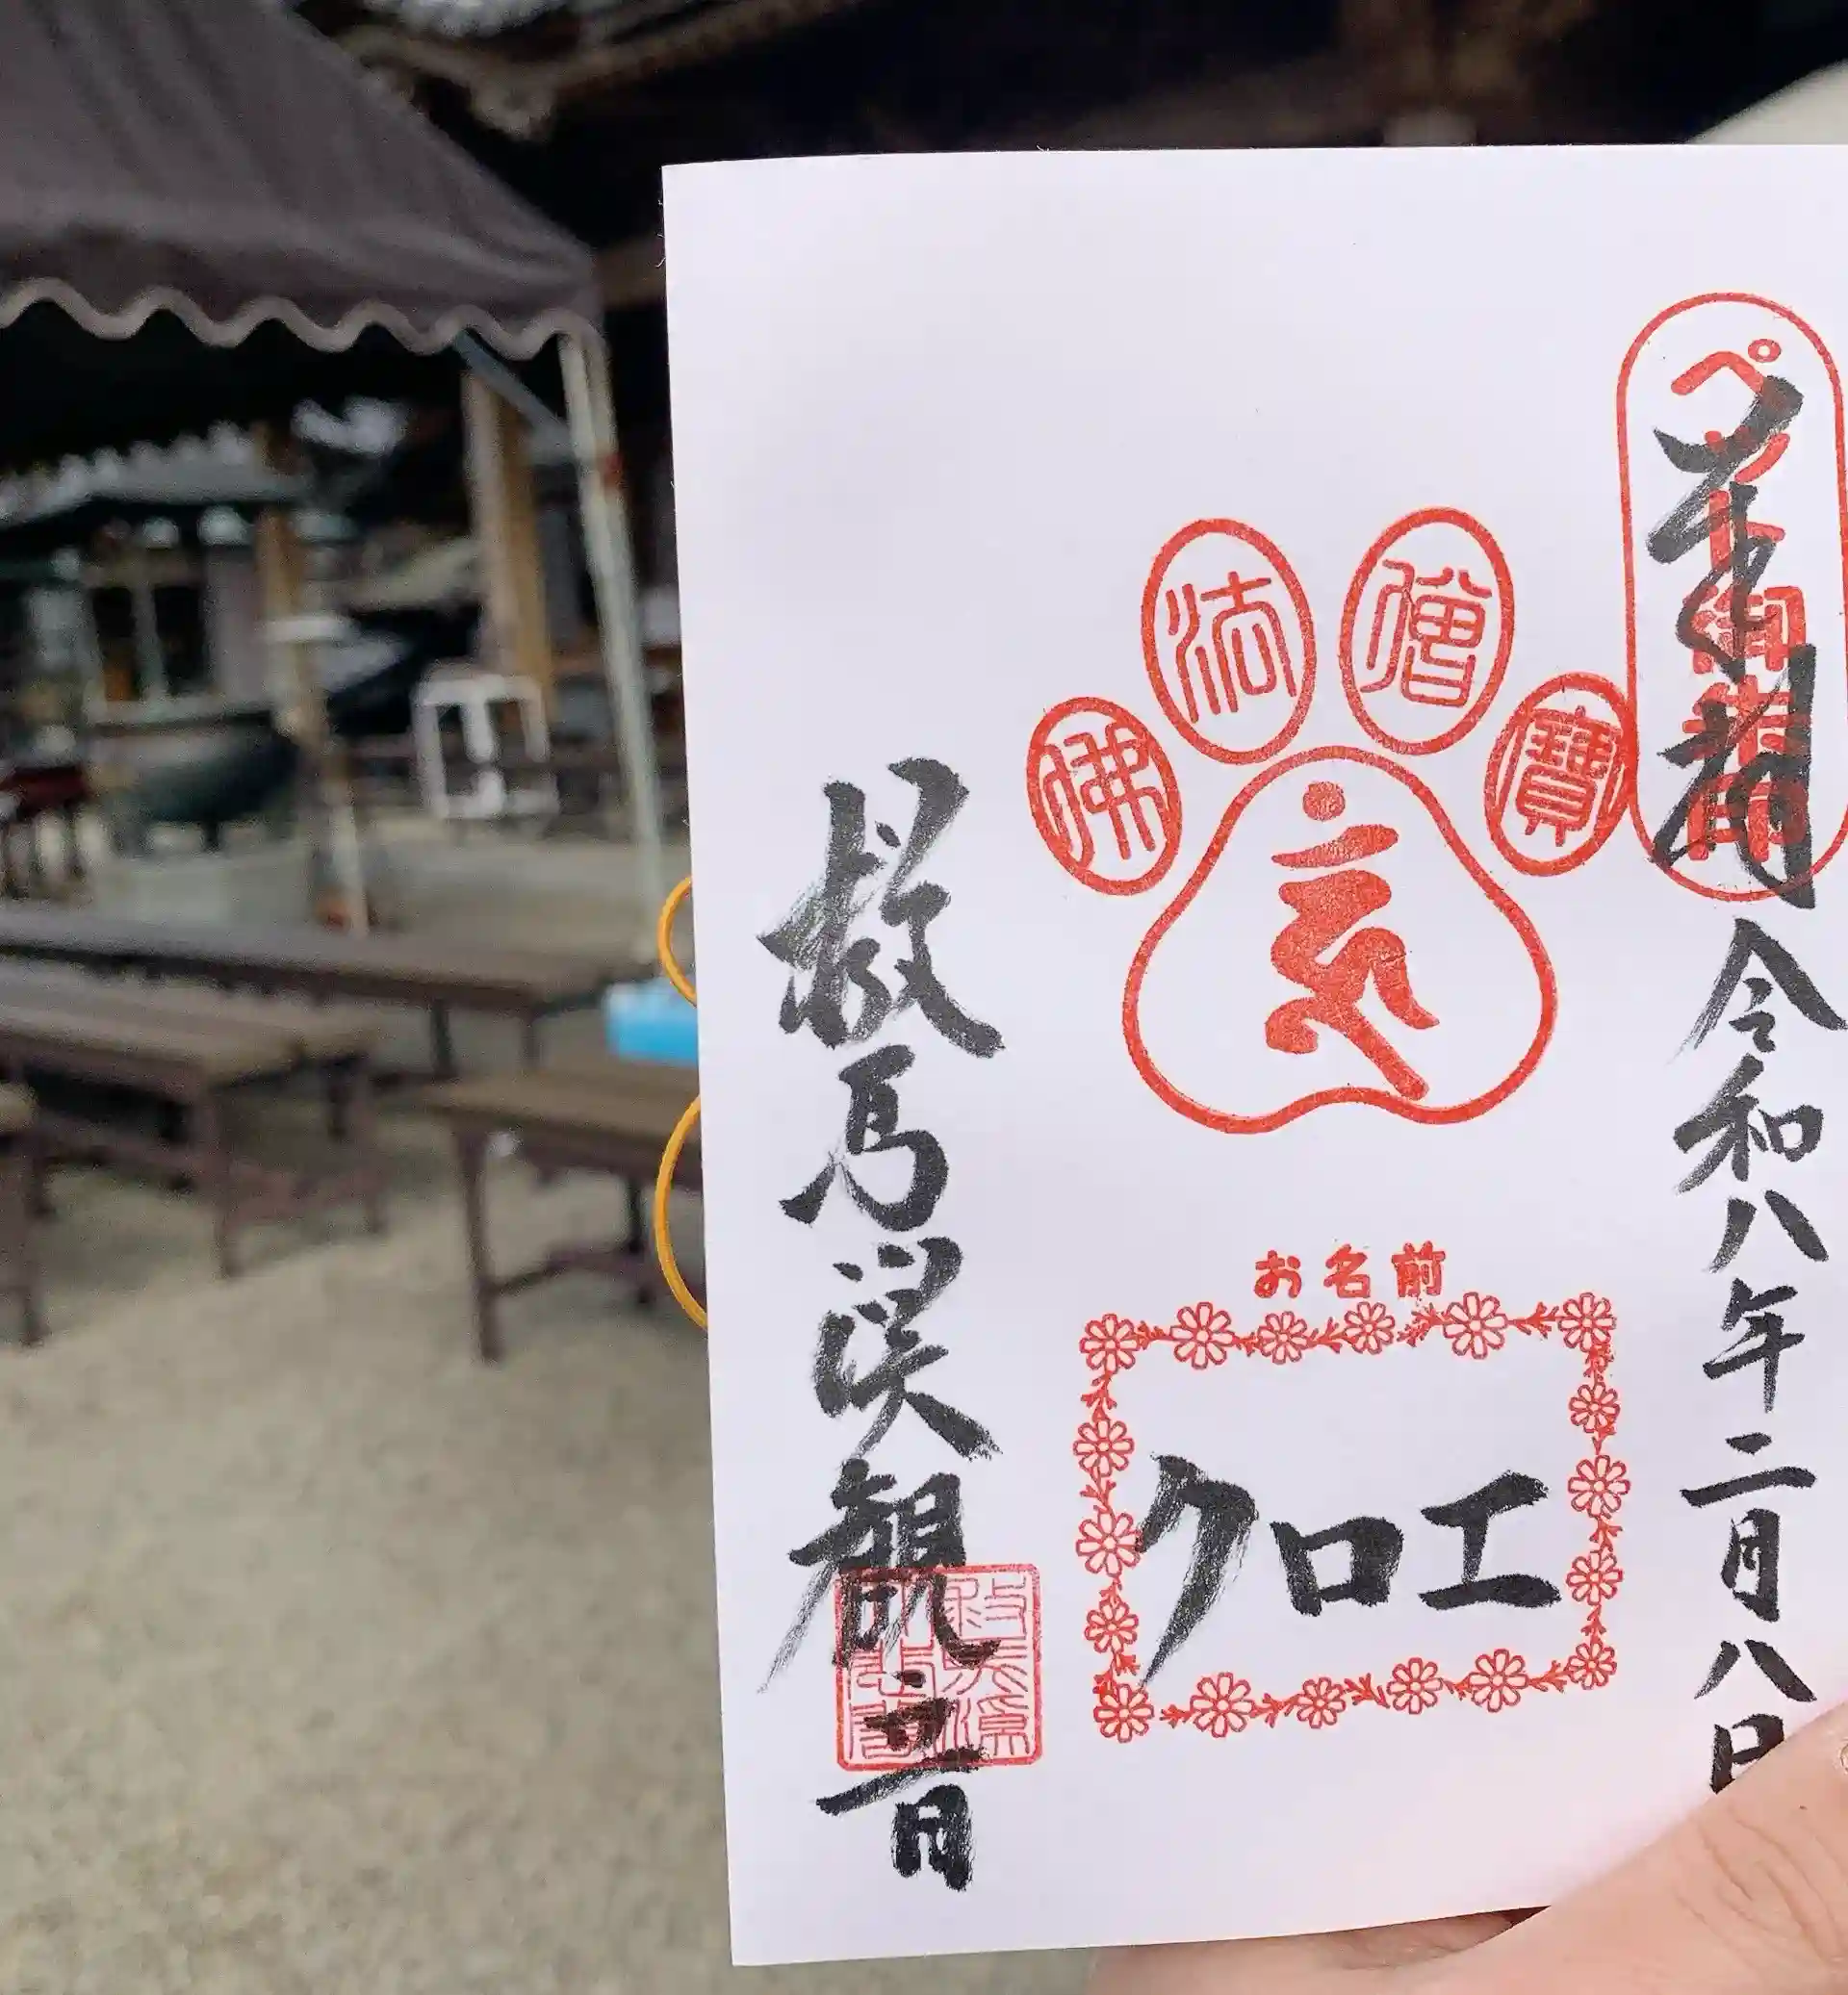 ペット御朱印
令和八年二月八日
佛法僧寶
お名前
クロエ
救馬渓観音